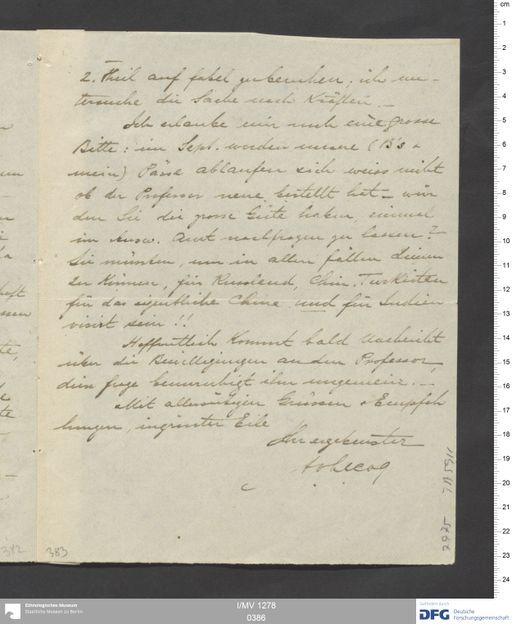 2. Theil auf Fabel zu beruhen. ich un-
tersuche die Sache nach Kräften. _
Ich erlaube mir noch eine grosse
Bitte: im Sept. werden unsere (B's &
mein) Pässe ablaufen ich weiss nicht
ob der Professor neue bestellt hat – wür
den Sie die grosse Güte haben, einmal
im Ausw. Amt nachfragen zu lassen?
Sie müssten, um in allen Fällen dienen
zu können, für Russland, Chin. Turkistan
für das eigentliche China und für Indien
visirt sein !!
Hoffentlich kommt bald Nachricht
über die Bewilligungen an den Professor,
diese Frage beunruhigt ihn ungemein. _
Mit allen Grüssen & Empfeh
lungen, in grösster Eile
Ihr ergebenster
A v Lecoq
382
383
I/MV 1278
0386
Ethnologisches Museum
Staatliche Museen zu Berlin
DFG
Deutsche
Forschungsgemeinschaft
cm
1
2
3
4
5
6
7
8
9
10
11
12
13
14
15
16
17
18
19
20
21
22
23
24